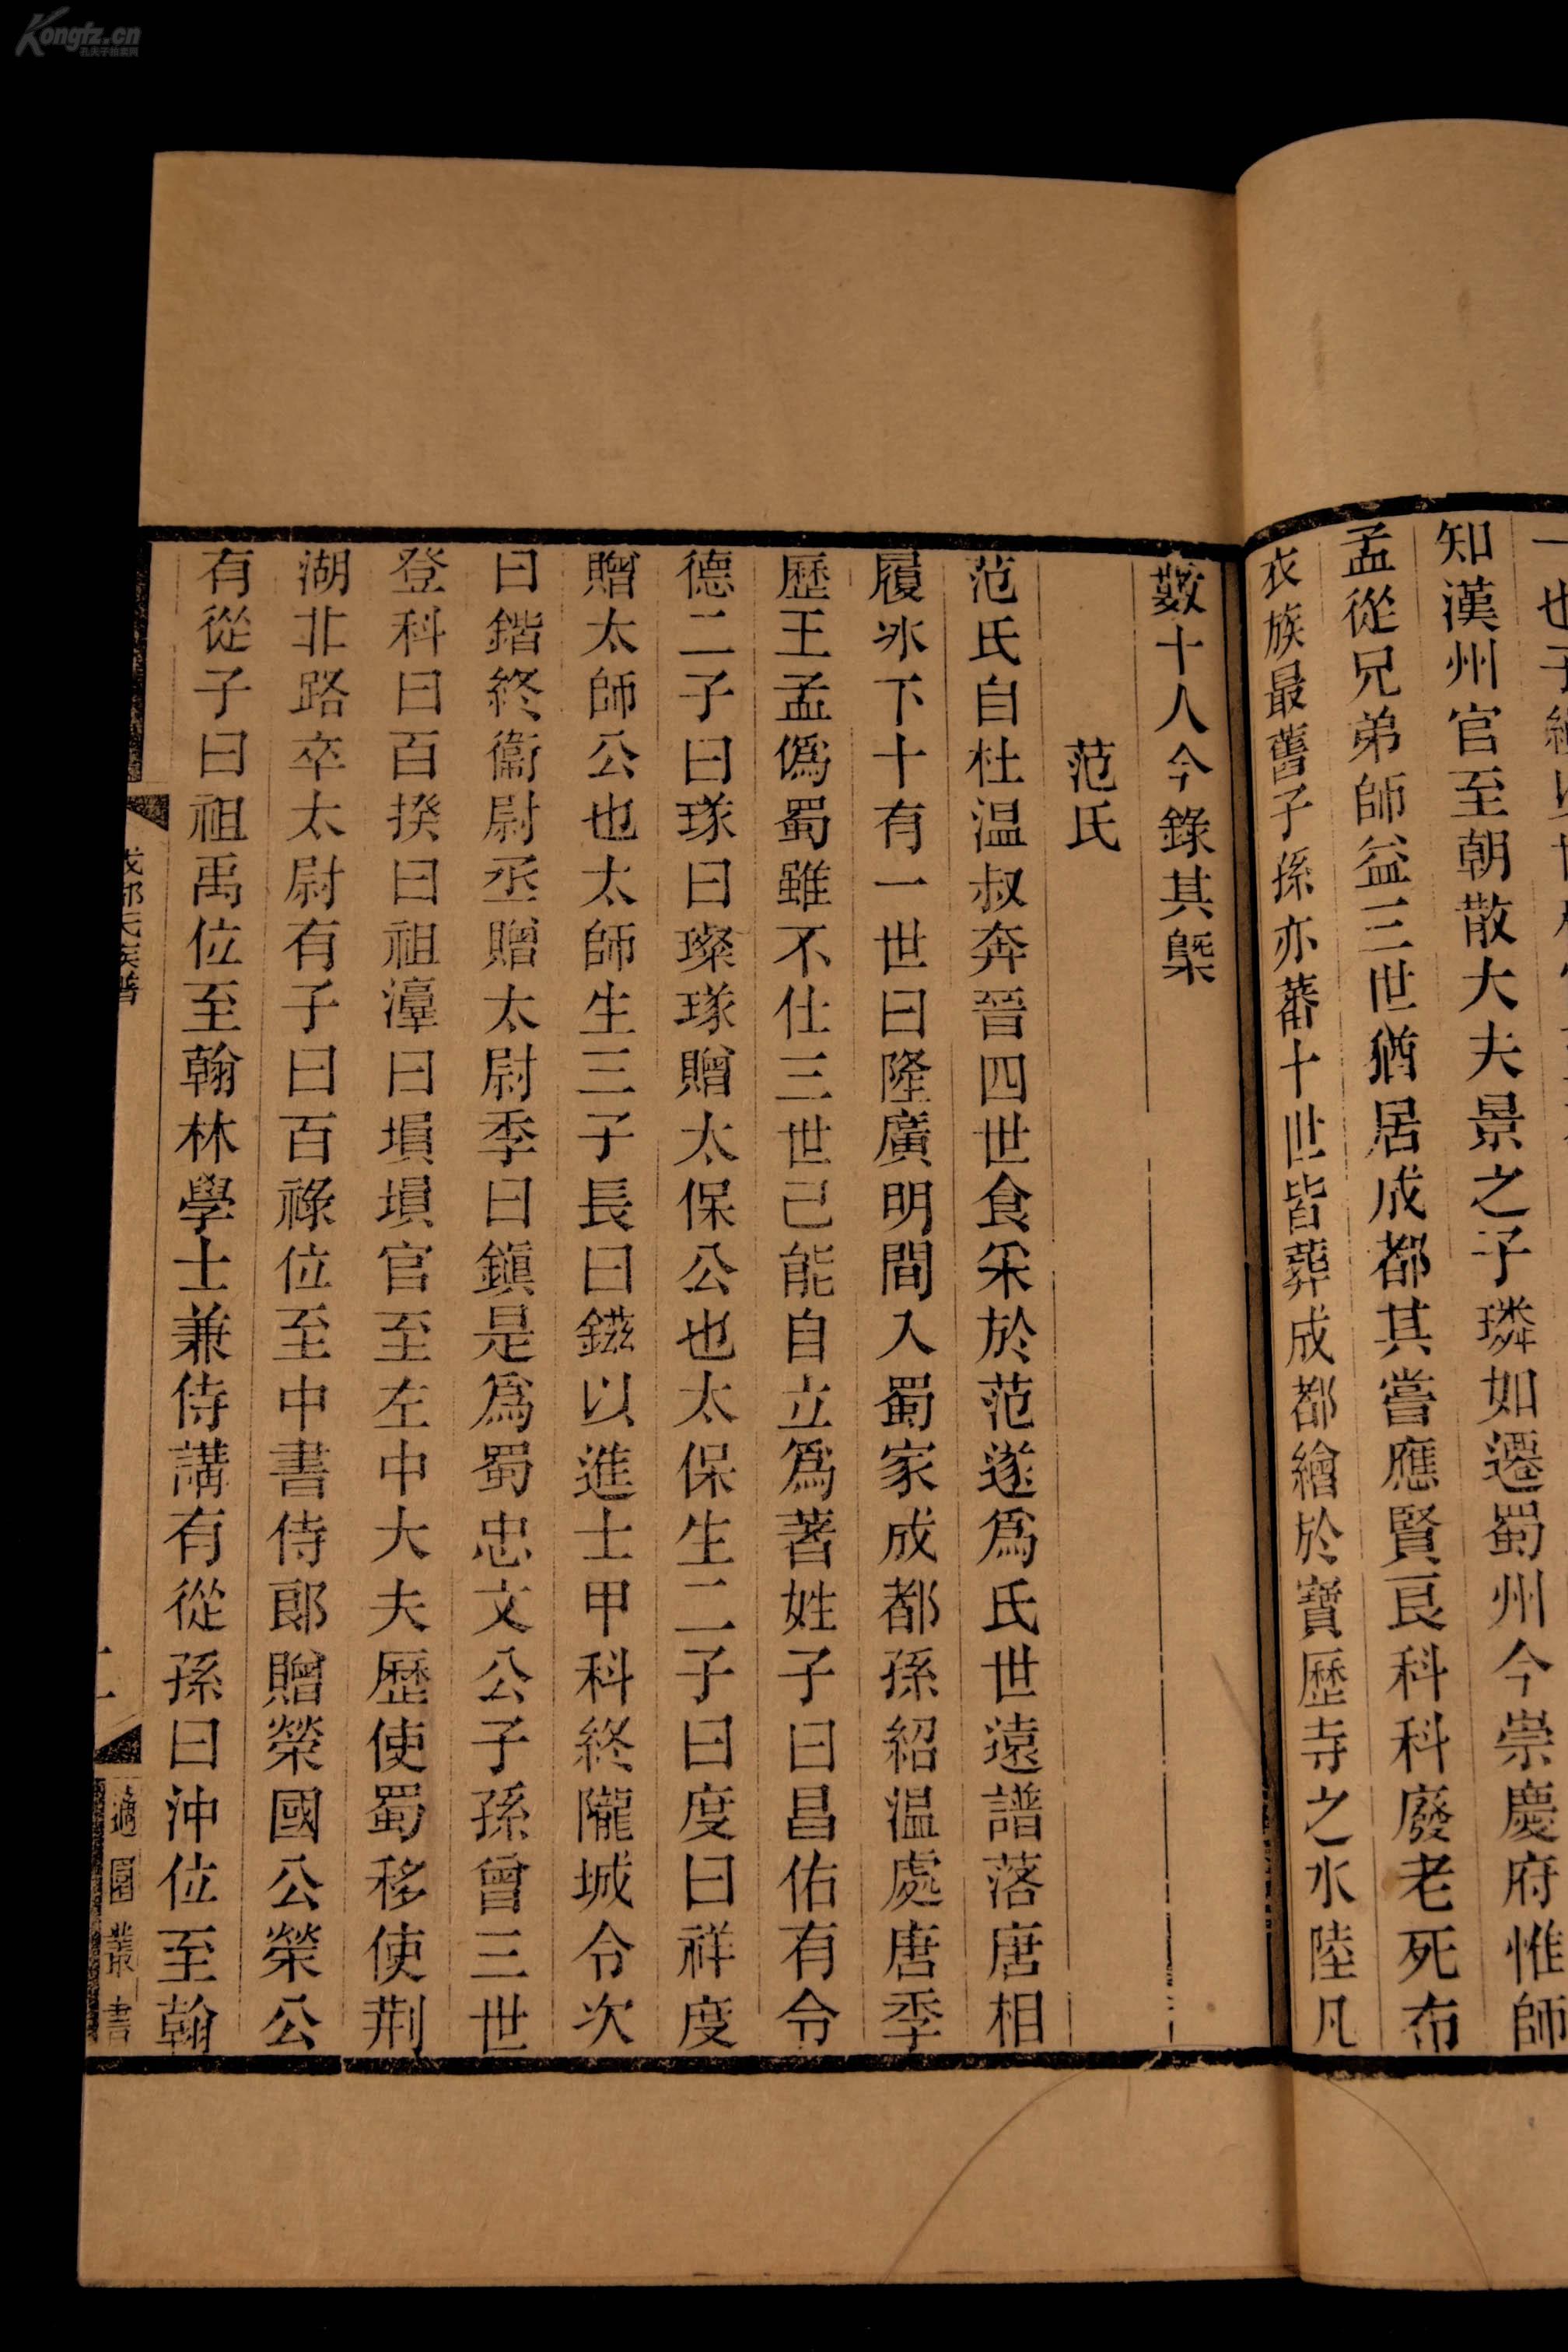 知漢州官至朝散大夫景之子璘如遷蜀州今崇慶府惟師
孟從兄弟師益三世猶居成都其嘗應賢良科科廢老死布
衣族最舊子孫亦蕃十世皆葬成都繪於寶歷寺之水陸凡
數十人今錄其槩
范氏
范氏自杜温叔奔晉四世食采於范遂爲氏世遠譜落唐相
履氷下十有一世曰隆廣明間入蜀家成都孫紹温處唐季
歷王孟僞蜀雖不仕三世己能自立爲著姓子曰昌佑有令
德二子曰璲曰璨璲贈太保公也太保生二子曰度曰祥度
贈太師公也太師生三子長曰鎡以進士甲科終隴城令次
曰鍇終衞尉丞贈太尉季曰鎭是爲蜀忠文公子孫曾三世
登科曰百揆曰祖𣽂曰塤塤官至左中大夫歷使蜀移使荆
湖北路卒太尉有子曰百祿位至中書侍郎贈榮國公榮公
有從子曰祖禹位至翰林學士兼侍講有從孫曰沖位至翰
成都氏族譜
二
適園叢書
Kongfz.cn